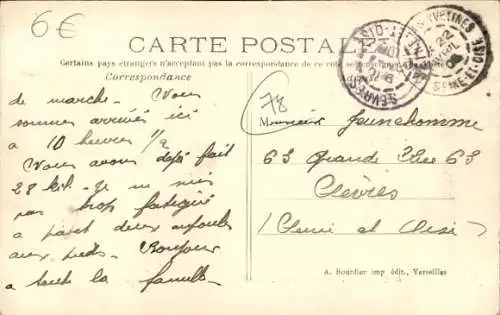 6€
CARTE POSTALE
Certains pays étrangers n'acceptent pas la correspondance de ce côté
Correspondance
78
de marche. Nous
sommes arrivés ici
à 10 heures 1/2
Nous avons déjà fait
28 kil. Je ne suis
pas trop fatigué
à part deux ampoules
aux pieds. Bonjour
à toute la famille.
Monsieur Jeunehomme
63 Grande Rue 63
Sèvres
(Seine et Oise)
YVELINES
22
SEINE-ET-OISE
SÈVRES
A. Bourdier imp édit., Versailles